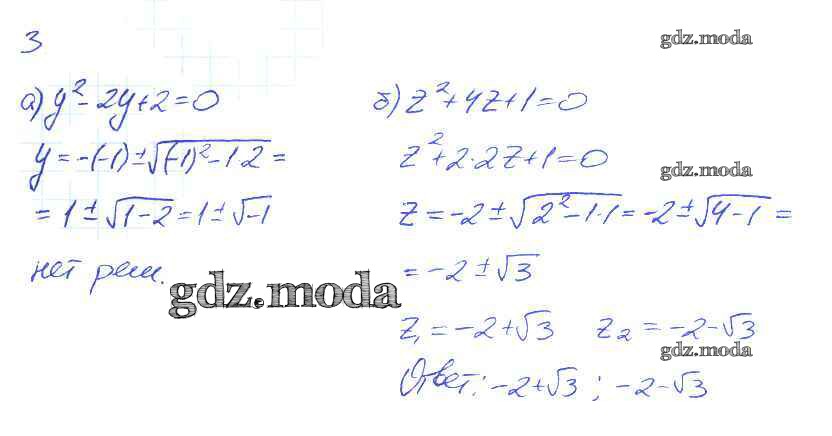 3
gdz.moda
а) y² - 2y + 2 = 0
y = -(-1) ± √((-1)² - 1·2) =
= 1 ± √(1-2) = 1 ± √-1
нет реш.
gdz.moda
б) z² + 4z + 1 = 0
z² + 2·2z + 1 = 0
gdz.moda
z = -2 ± √(2² - 1·1) = -2 ± √(4-1) =
= -2 ± √3
z₁ = -2 + √3 z₂ = -2 - √3
gdz.moda
Ответ: -2 + √3 ; -2 - √3